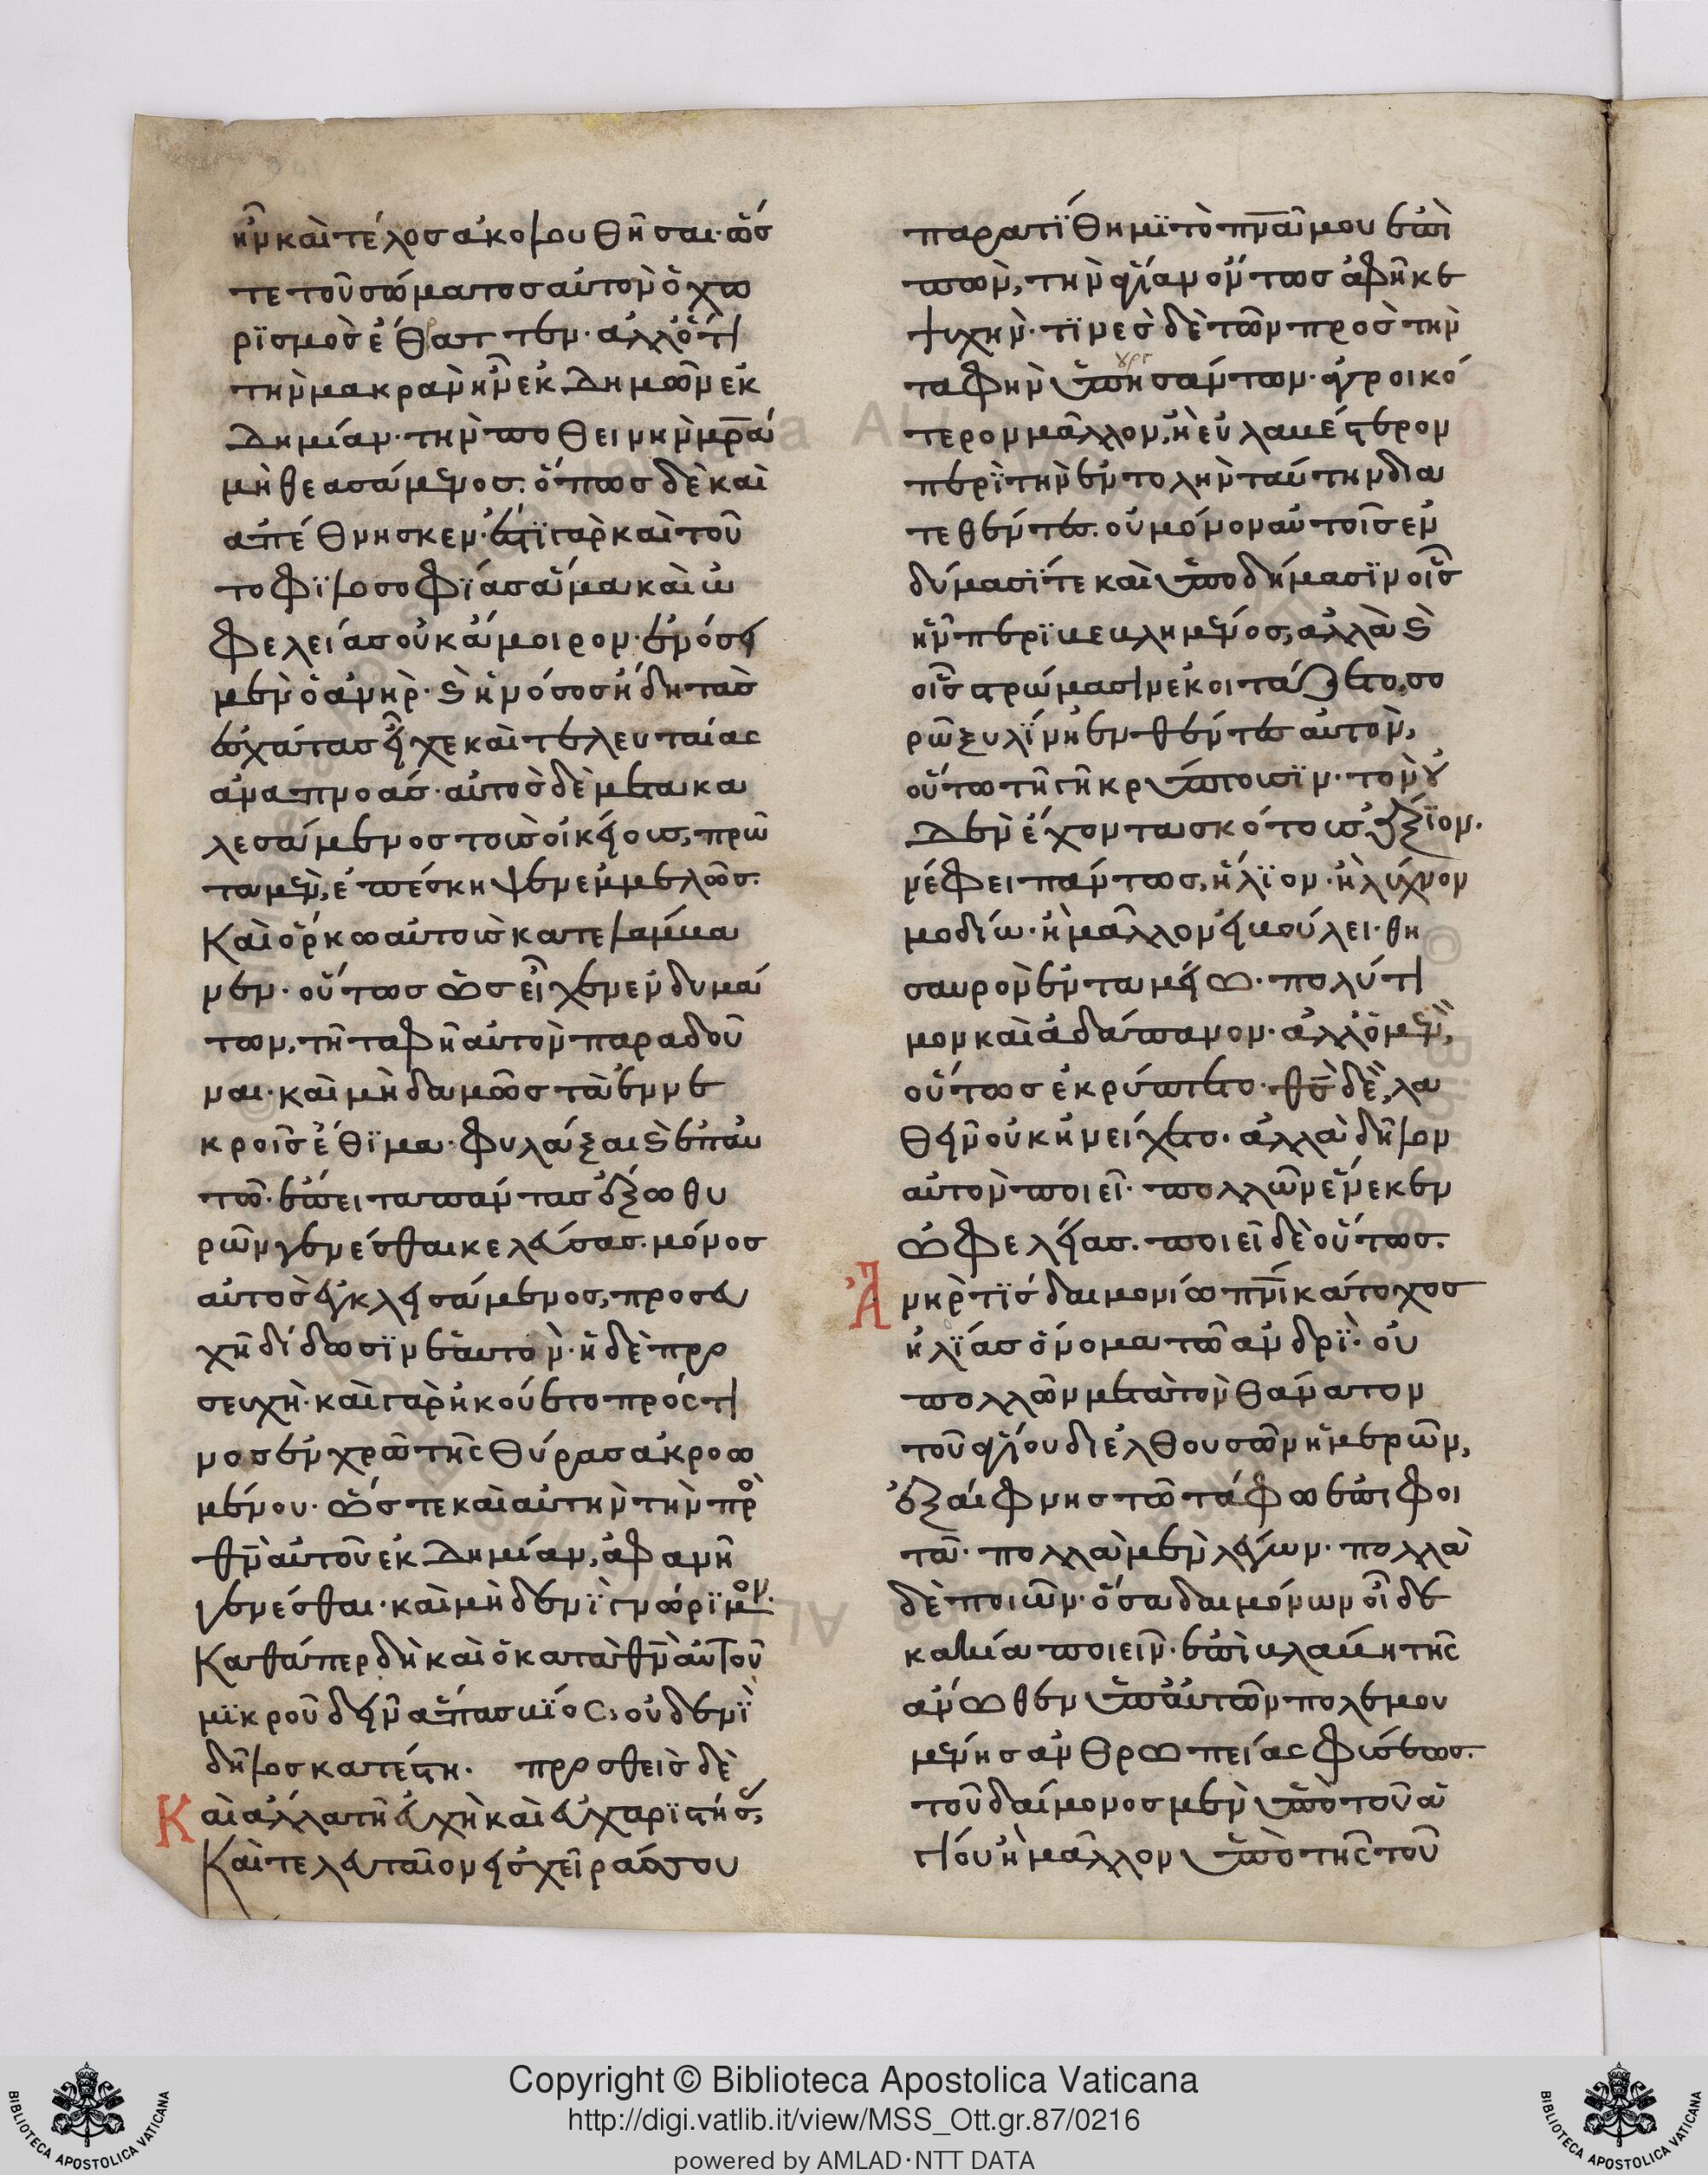 ἦν καὶ τέλος ἀκολουθῆσαι· ὥσ
τε τοῦ σώματος αὐτὸν ὁ χω
ρϊσμὸς ἔθαττεν· ἀλλ' ὅτι
τὴν μακρὰν ἦν ἐκδημῶν ἐκ
δημίαν· τὴν ποθεινὴν μρ̅ά
μὴ θεασάμενος· ὅπως δὲ καὶ
ἀπέθνησκεν· ἔστϊ γὰρ καὶ τοῦ
το φϊλοσοφϊάς ἅμα καὶ ὠ
φελείας οὐκ ἄμοιρον· ἐνόσει
μὲν ὁ ἀνήρ· καὶ ἦν ὅσος ἤδη τὰς
ἐσχάτας εἶχε καὶ τελευταίας
ἀναπνοάς· αὐτὸς δὲ μετακα
λεσάμενος τοὺς οἰκείους, πρῶ
τα μὲν, ἐπέσκηψεν ἐμμελῶς·
Καὶ ὅρκω αὐτοὺς κατελάμβα
νεν· οὕτως ὡς εἶχεν ἐνδυμά
των, τῆ ταφῆ αὐτὸν παραδοῦ
ναι· καὶ μηδαμῶς τὰ ἐν νε
κροῖς ἔθϊμα· φυλάξαι καὶ ἐπ' αυ
τῶ· ἔπειτα πάντας ἔξω θυ
ρῶν γενέσθαι κελεύσας· μόνος
αὐτὸς ἐγκλεισάμενος, προσευ
χῆ δίδωσϊν ἑαυτόν· ἡ δὲ προ
σευχὴ· καὶ γὰρ ἠκούετο πρός τι
νος ἐν χρῶ τῆς θύρας ἀκροω
μένου· ὥστε καὶ αὐτὴν τὴν πρὸ
θν̅ αὐτοῦ ἐκδημίαν, ἀφανῆ
γενέσθαι· καὶ μὴ δενὶ γνώρϊμον·
Καθάπερ δὴ καὶ ὁ κατὰ θν̅ αὐτοῦ
μϊκροῦ δεῖν ἅπας βϊός, οὐδενὶ
δῆλος κατέστη· προσθεὶς δὲ
Καὶ ἄλλα τῆ εὐχῆ καὶ εὐχαρϊστήσ,
Καὶ τελευταῖον εἰς χεῖράς σου
παρατϊθημϊ τὸ πν̅ᾶ μου ἐπὶ
πὼν, τὴν ἁγίαν ὄντως ἀφῆκε
ψυχὴν· τϊνὲς δὲ τῶν πρὸς τὴν
ταφὴν ὑπησάντων· ἀγροικό
τερον μᾶλλον, ἢ εὐλαβέστερον
περὶ τὴν ἐντολὴν ταύτην δια
τεθέντες· οὐ μόνον αὐτοῖς ἐν
δύμασϊ τε καὶ ὑποδήμασϊν οἷς
ἦν περϊβεβλημένος, ἀλλὰ καὶ
οἷς στρώμασιν ἐκοιτάζετο, σο
ρῶ ξυλίνη ἐνθέντες αὐτὸν,
οὕτω τῆ γῆ κρύπτουσϊν· τὸν οὐ
δὲν ἔχοντα σκότους ἄξϊον·
νέφει πάντως, ἥλϊον· ἢ λύχνον
μοδίω· ἢ μᾶλλον εἰ βούλει· θη
σαυρὸν ἐνταμείω· πολύτι
μον καὶ ἀδάπανον· ἀλλ' ὁ μὲν,
οὕτως ἐκρύπτετο· θς̅ δὲ, λα
θεῖν οὐκ ἠνείχετο· ἀλλὰ δῆλον
αὐτὸν ποιεῖ· πολλῶν ἕνεκεν
ὠφελείας· ποιεῖ δὲ οὕτως·
Ἀνήρ τϊς δαιμονίω πν̅ι κάτοχος
ἡλϊας ὄνομα τῶ ἀνδρϊ· οὐ
πολλῶν μετὰ τὸν θάνατον
τοῦ ἁγίου διελθουσῶν ἡμερῶν,
ἐξαίφνης τῶ τάφω ἐπιφοι
τᾶ· πολλὰ μὲν λέγων· πολλὰ
δὲ ποιῶν· ὅσα δαιμόνων οἶδε
κακία ποιεῖν· ἐπὶ βλάβη τῆς
ἀνωθεν ὑπ' αὐτῶν πολεμου
μένης ἀνθρωπείας φύσεως·
τοῦ δαίμονος μὲν ὑπὸ τοῦ ἁ
γίου ἢ μᾶλλον ὑπὸ τῆς τοῦ
Copyright © Biblioteca Apostolica Vaticana
http://digi.vatlib.it/view/MSS_Ott.gr.87/0216
powered by AMLAD·NTT DATA
BIBLIOTECA APOSTOLICA VATICANA
BIBLIOTECA APOSTOLICA VATICANA